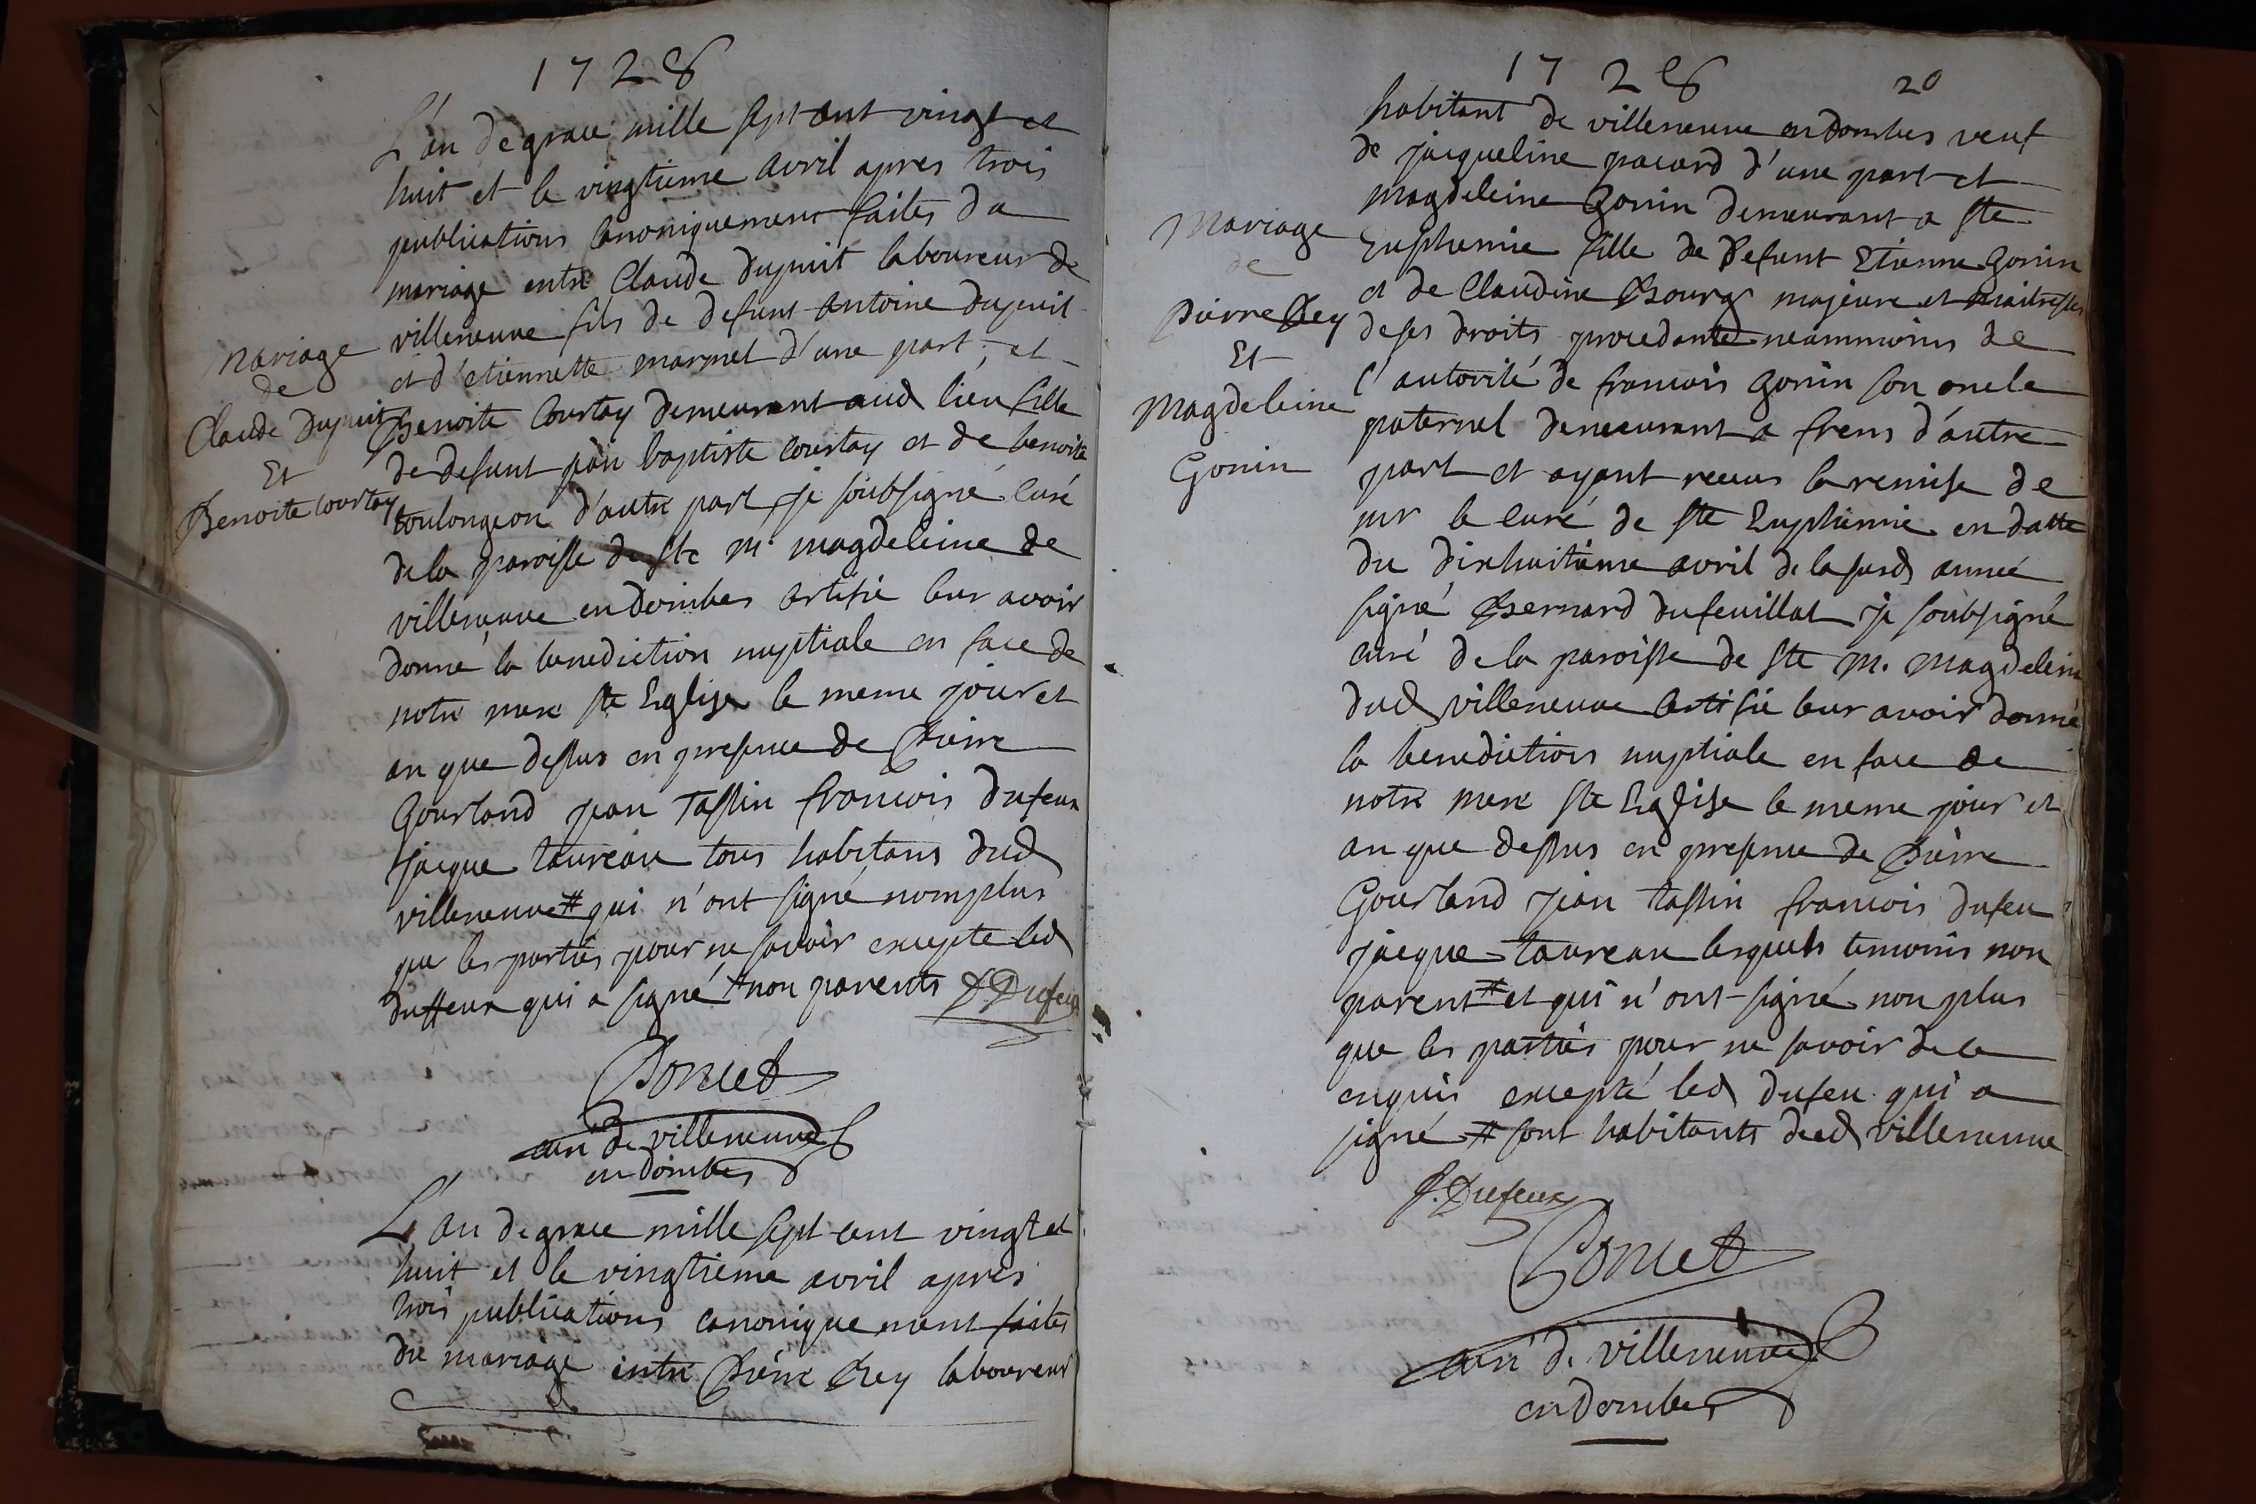 1728
L'an de grace mille sept cent vingt et
huit et le vingtieme avril apres trois
publications canoniquement faites du
mariage entre Claude dupuit laboureur de
villeneuve fils de defunt antoine dupuit
et d'etiennette marmet d'une part, et
Benoite Courtay demeurant aud lieu fille
de defunt jean baptiste courtay et de benoite
toulongeon d'autre part je soubsigné curé
de la paroisse de ste m. magdeleine de
villeneuve en dombes certifie leur avoir
donné la benediction nuptiale en face de
notre mere ste Eglise le meme jour et
an que dessus en presence de Pierre
Gourland jean Tassin francois dufeux
jacque taureau tous habitans dud
villeneuve # qui n'ont signé nomplus
que les parties pour ne savoir excepte led
duffeux qui a signé # non parents f Dufeux
Mariage
de
Claude dupuit
Et
Benoite Courtay
Poncet
curé de villeneuve
en dombes
L'an de grace mille sept cent vingt et
huit et le vingtieme avril apres
trois publications canoniquement faites
du mariage entre Pierre Rey laboureur
1728
20
habitant de villeneuve en dombes veuf
de jacqueline pacard d'une part et
magdeleine Gonin demeurant a ste
Euphemie fille de Defunt Etienne Gonin
et de Claudine Bourg majeure et maitresse
de ses droits procedante neammoins de
l'autorité de francois gonin son oncle
paternel demeurant a frens d'autre
part et ayant receus la remise de
mr le curé de ste Euphemie en datte
du dixhuitieme avril de la susd année
signé Bernard dufeuillat je soubsigné
curé de la paroisse de ste m. magdeleine
dud villeneuve certifie leur avoir donné
la benediction nuptiale en face de
notre mere ste Eglise le meme jour et
an que dessus en presence de Pierre
Gourland jean tassin francois dufeu
jacque taureau lesquels temoins non
parent # et qui n'ont signé non plus
que les parties pour ne savoir de ce
enquis excepté led dufeu qui a
signé # sont habitants dud villeneuve
Mariage
de
Pierre Rey
Et
Magdeleine
Gonin
f. Dufeux
Poncet
curé de villeneuve
en dombes